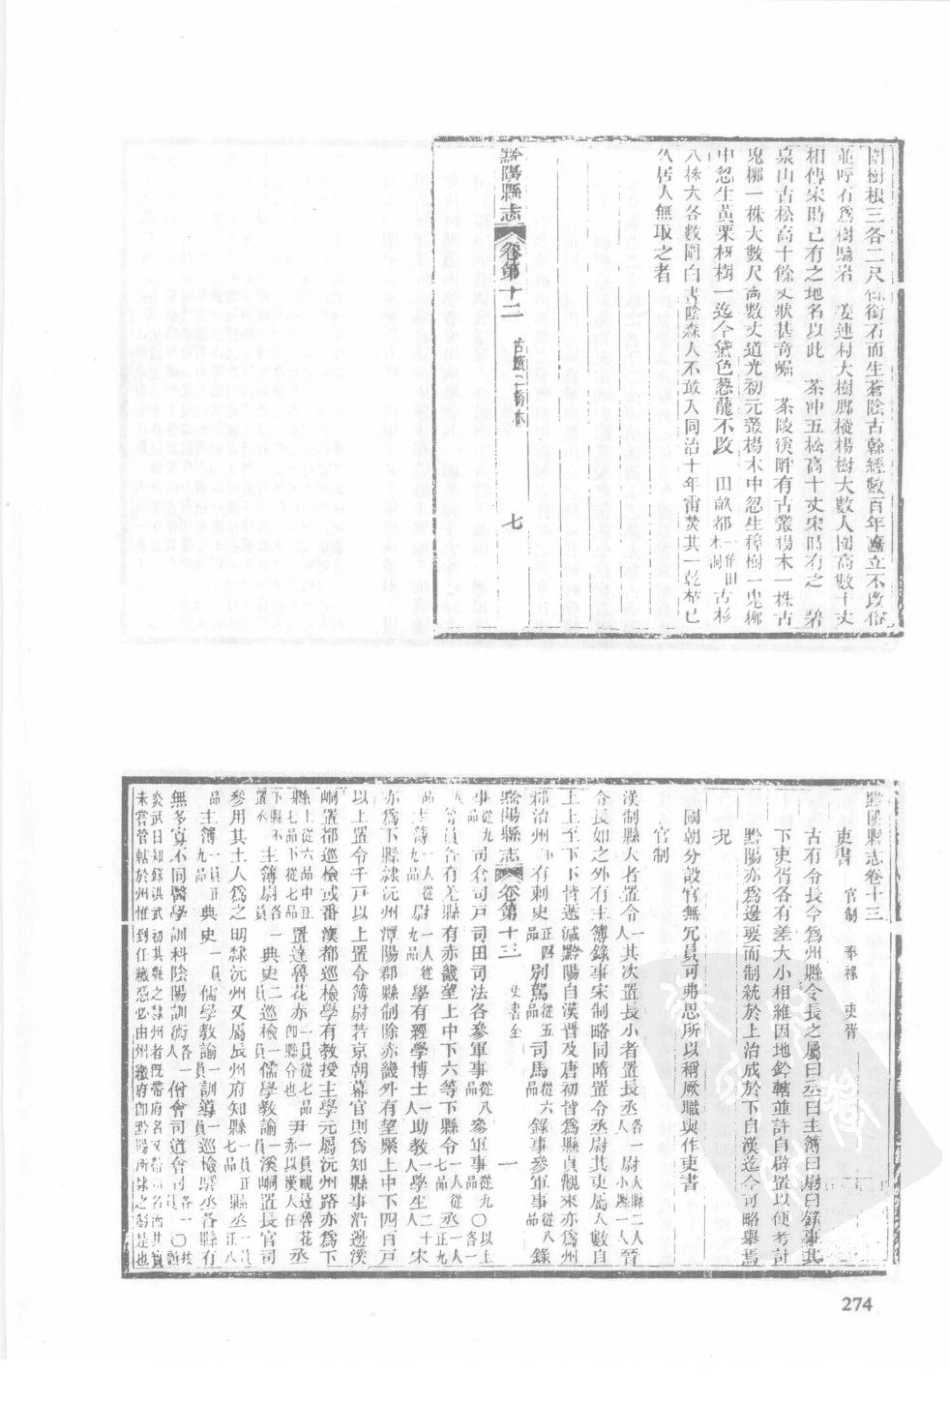 間樹根三各二尺餘銜石而生蒼陰古榦經數百年矗立不改俗
並呼石爲樹 岩 姜連村大樹脚樅楊樹大數人圍高數十丈
相傳宋時已有之地名以此 茶冲五松高十丈宋時有之 碧
泉山古松高十餘丈狀甚奇崛 茶陵溪畔有古叢楊木一株古
兜柳一株大數尺高數丈道光初元叢楊木中忽生樟樹一兜柳
中忽生黃栗椏樹一迄今黛色葱蘢不改 田畝都 古杉
八株大各數圍白晝陰森人不敢入同治十年雷焚其一乾枯已
久居人無取之者
黔陽縣志 卷第十二 七
黔陽縣志卷十三
吏書 官制 奉祿 吏胥
古有令長今爲州縣令長之屬曰丞曰主簿曰尉曰錄事其
下吏胥各有差大小相維因地鈐轄並許自辟置以便考計
黔陽亦爲邊要而制統於上治成於下自漢迄今可略舉焉
況
國朝分設官無冗員可弗思所以稱厥職與作吏書
官制
漢制縣大者置令一其次置長小者置長丞各一人尉大縣二人小縣一人晉
令長如之外有主簿錄事宋制略同隋置令丞尉其吏屬人數自
上上至下下皆遞減黔陽自漢晉及唐初皆爲縣貞觀來亦爲州
郡治州 有刺史正四品別駕從五品司馬從六品錄事參軍事從八品錄
事從九品司倉司戶司田司法各參軍事從八品參軍事從九品〇以上各一
人 員合有差縣有赤畿望上中下六等下縣令一人從七品丞一人正九
品主簿一人從九品尉一人從九品學有經學博士一人助教一人學生二十人宋
亦爲下縣隷沅州潭陽郡縣制除赤畿外有望緊上中下四百戶
以上置令千戶以上置令簿尉若京朝幕官則爲知縣事沿邊溪
峒置都巡檢或番漢都巡檢學有教授主學元屬沅州路亦爲下
縣上從六品中正七品下從七品置達魯花赤一員從七品卽縣令也尹一員視達魯花赤以漢人任丞
下縣不置主簿尉各一員典史二員巡檢一員儒學教諭一員溪峒置長官司
參用其土人爲之明隷沅州又屬辰州府知縣一員正七品縣丞一員正八
品主簿一員正九品典史一員儒學教諭一訓導二員巡檢驛丞各縣有
無多寡不同醫學訓科陰陽訓術各一人僧會司道會司各一員
炎武日知錄洪武初其縣之隷州者旣帶府名又帶州名而其實
未嘗管轄於州惟到任繳憑必由州繳府卽黔陽所隷之制是也
黔陽縣志 卷第十三 吏書全 一
274